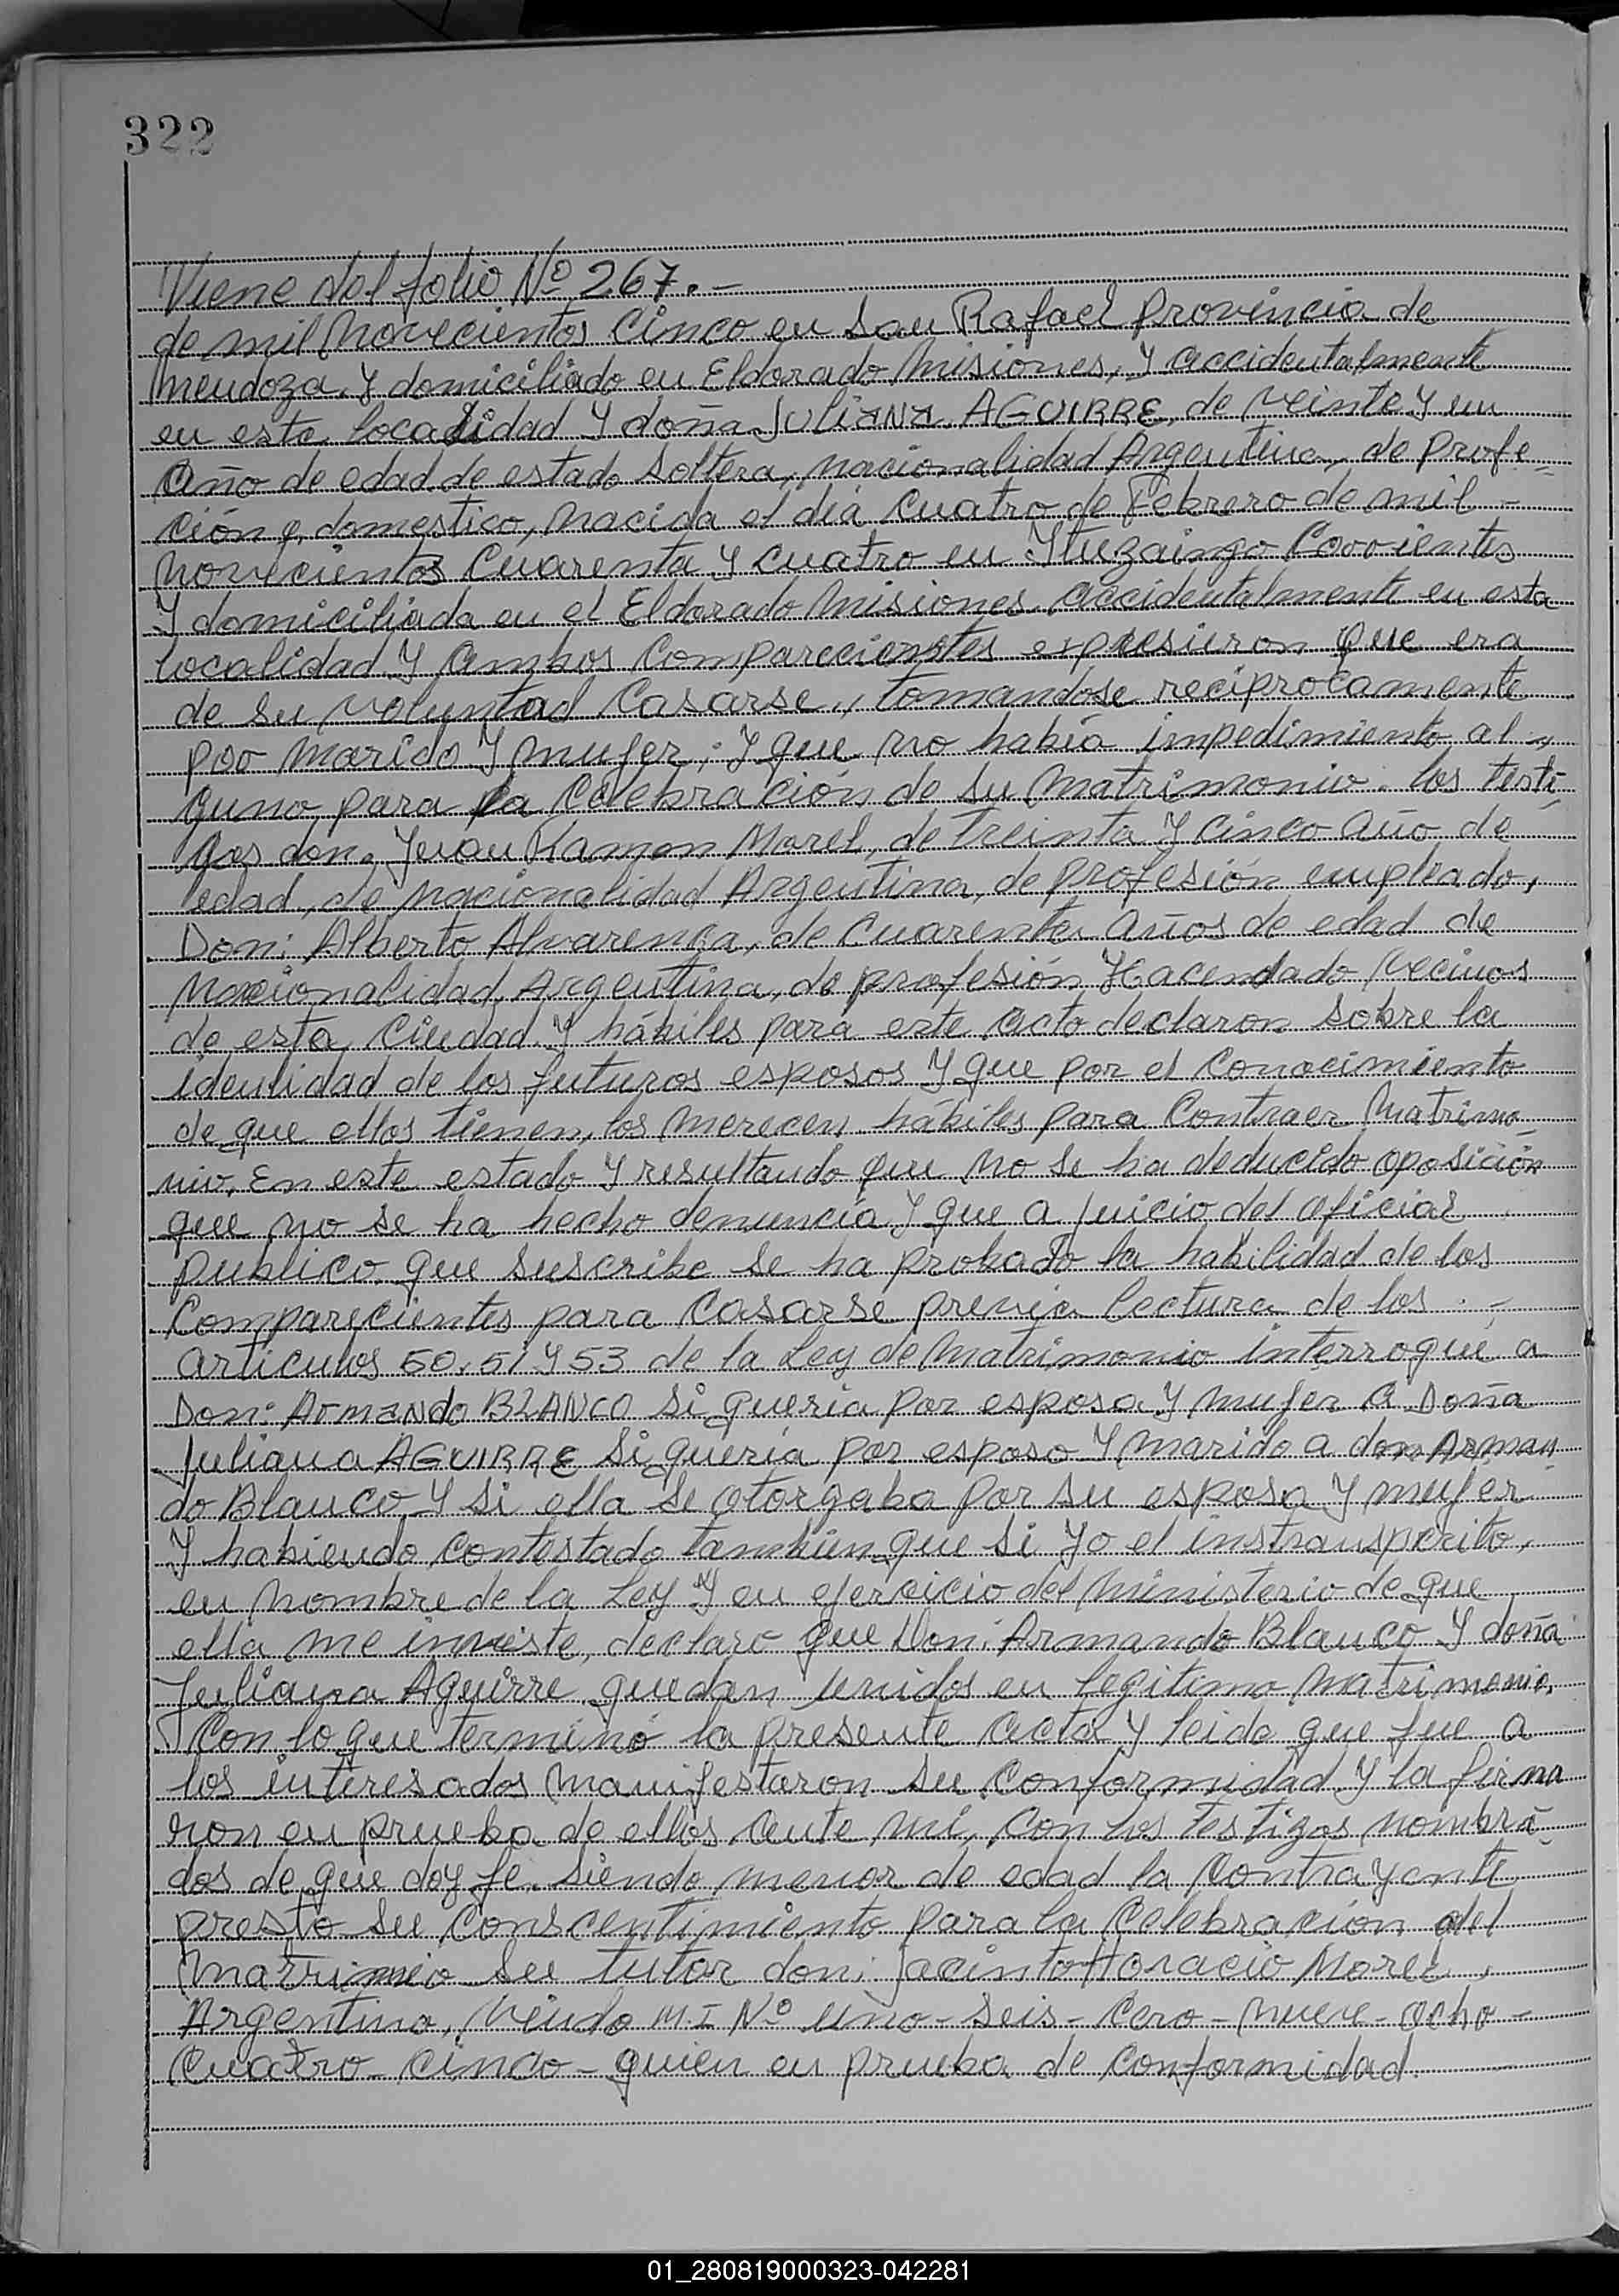 322
Viene del folio Nº 267.-
de mil novecientos Cinco en San Rafael Provincia de
Mendoza Y domiciliado en Eldorado Misiones, Y accidentalmente
en este localidad Y doña JULIANA AGUIRRE, de veinte Y un
Año de edad de estado Soltera, nacionalidad Argentina, de profe=
ción q. domestico, nacida el día Cuatro de Febrero de mil -
novecientos Cuarenta Y Cuatro en Ituzaingo Corrientes
Y domiciliada en el Eldorado Misiones accidentalmente en esta
localidad Y Ambos Comparecientes expusieron que era
de su voluntad Casarse, tomandose reciprocamente
por marido Y mujer; Y que no había impedimiento al -
guno para la Celebración de su Matrimonio. los testi-
gos don. Juan Ramon Morel, de Treinta Y Cinco Año de
edad, de nacionalidad Argentina, de profesión empleado,
Don: Alberto Alvarenga, de Cuarenta años de edad de
nacionalidad Argentina, de profesión Hacendado vecinos
de esta Ciudad Y hábiles para este acto declaron Sobre la
identidad de los futuros esposos Y que por el Conocimiento
de que ellos tienen, los merecen hábiles para Contraer Matrimo-
nio. En este estado Y resultando que no se ha deducido oposición
que no se ha hecho denuncia Y que a juicio del oficial
publico que suscribe se ha probado la habilidad de los
Comparecientes para Casarse previa lectura de los . -
articulos 50. 51 Y 53 de la Ley de Matrimonio interrogué a
Don: Armando BLANCO si queria por esposa Y mujer a Doña
Juliana AGUIRRE si quería por esposo Y marido a don Arman-
do Blanco Y si ella se otorgaba por su esposa Y mujer
Y habiendo Contestado tambien que si Yo el instransperito,
en nombre de la Ley Y en ejercicio del Ministerio de que
ella me inviste, declaro que Don: Armando Blanco Y doña
Juliana Aguirre quedan unidos en legitimo matrimonio.
Con lo que terminó la presente acta Y leida que fue a
los interesados manifestaron su Conformidad Y la firma
ron en prueba de ellos ante mi, Con los Testigos nombra-
dos de que doy fe. siendo menor de edad la Contrayente
presto su Conscentimiento para la Celebración del
Matrimnio su tutor don: Jacinto Horacio Morel,
Argentino, Viudo M.I Nº uno - seis - cero - nueve - ocho -
Cuatro - cinco - quien en prueba de Conformidad.
01_280819000323-042281